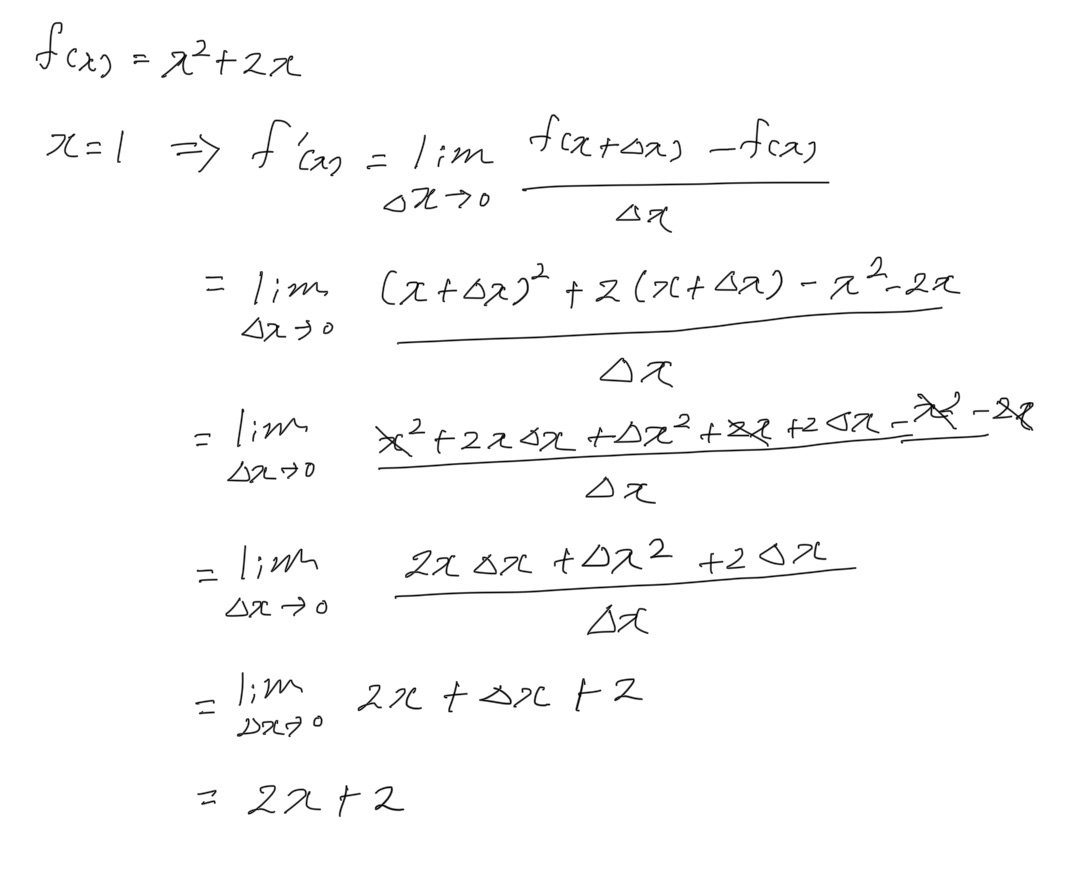 f(x) = x²+2x
x=1 ⇒ f'(x) = lim Δx→0 (f(x+Δx) − f(x)) / Δx
= lim Δx→0 ((x+Δx)² + 2(x+Δx) − x² − 2x) / Δx
= lim Δx→0 (x² + 2xΔx + Δx² + 2x + 2Δx − x² − 2x) / Δx
= lim Δx→0 (2xΔx + Δx² + 2Δx) / Δx
= lim Δx→0 2x + Δx + 2
= 2x + 2